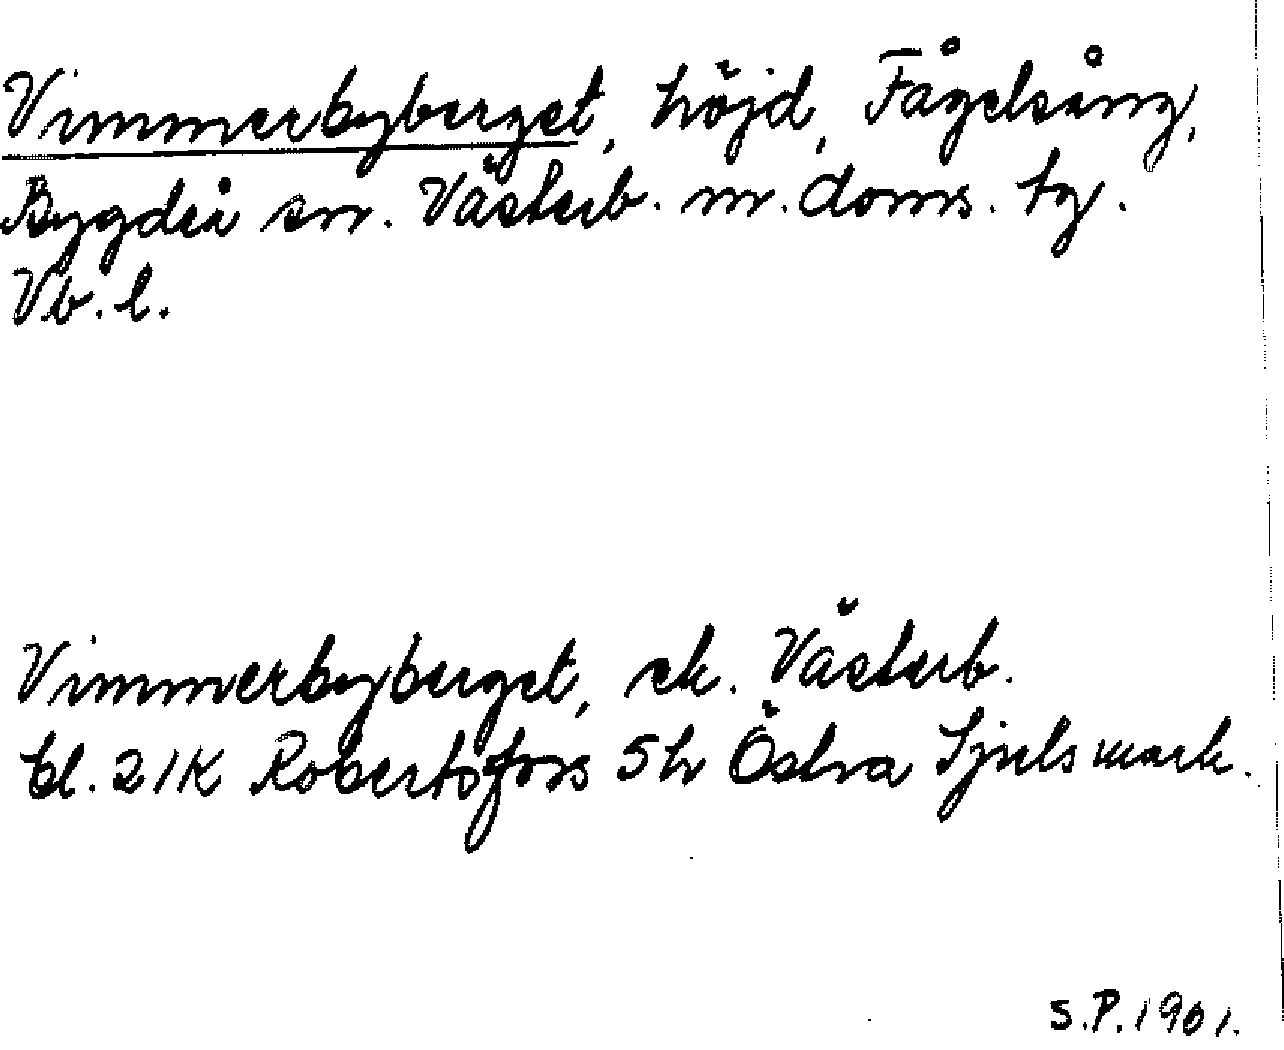 Vimmerbyberget, höjd, Fågelsång,
Bygdeå sn. Västerb. m. doms. tg.
Vb. l.
Vimmerbyberget, ek. Västerb.
bl. 21K Robertsfors 5h Östra Sjulsmark.
S.P. 1961.